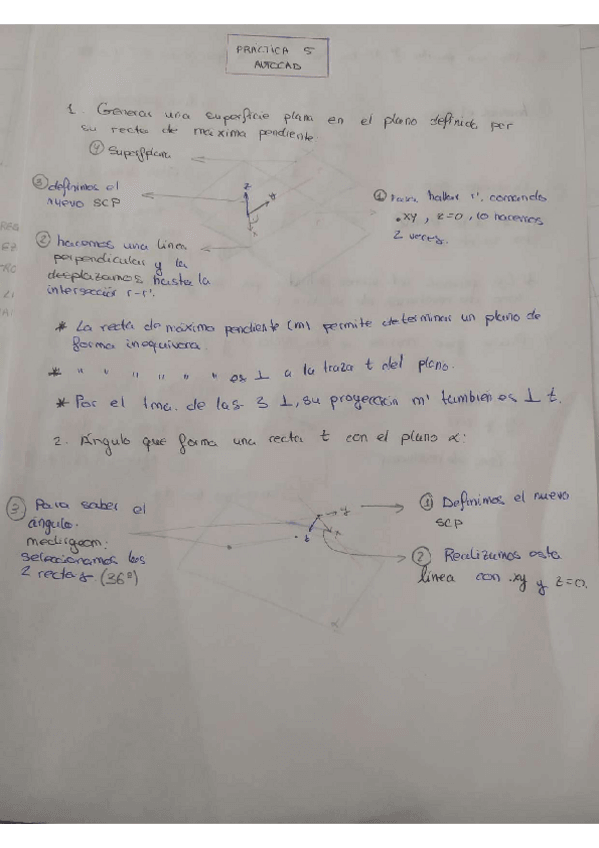 PRACTICA 5
AUTOCAD
1. Generar una superficie plana en el plano definido por
su recta de máxima pendiente.
④ Superfplana
③ definimos el
nuevo SCP
① Para hallar r'. comando
.XY, z=0, lo hacemos
2 veces.
② hacemos una línea
perpendicular y la
desplazamos hasta la
intersección r-r'.
* La recta de máxima pendiente (m) permite determinar un plano de
forma inequívoca.
* " " " " " " es ⊥ a la traza t del plano.
* Por el tma. de las 3 ⊥, su proyección m' también es ⊥ t.
2. Ángulo que forma una recta t con el plano α:
③ Para saber el
ángulo.
medirgeom:
seleccionamos las
2 rectas (36º)
① Definimos el nuevo
SCP
② Realizamos esta
línea con .xy y z=0.
α